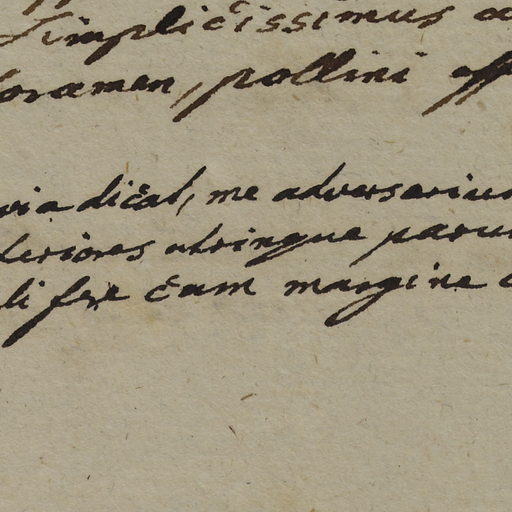 Simplicissimus
foramen, pollini
dicat, me adversarium
teriores utrinque parum
li fere cum margine